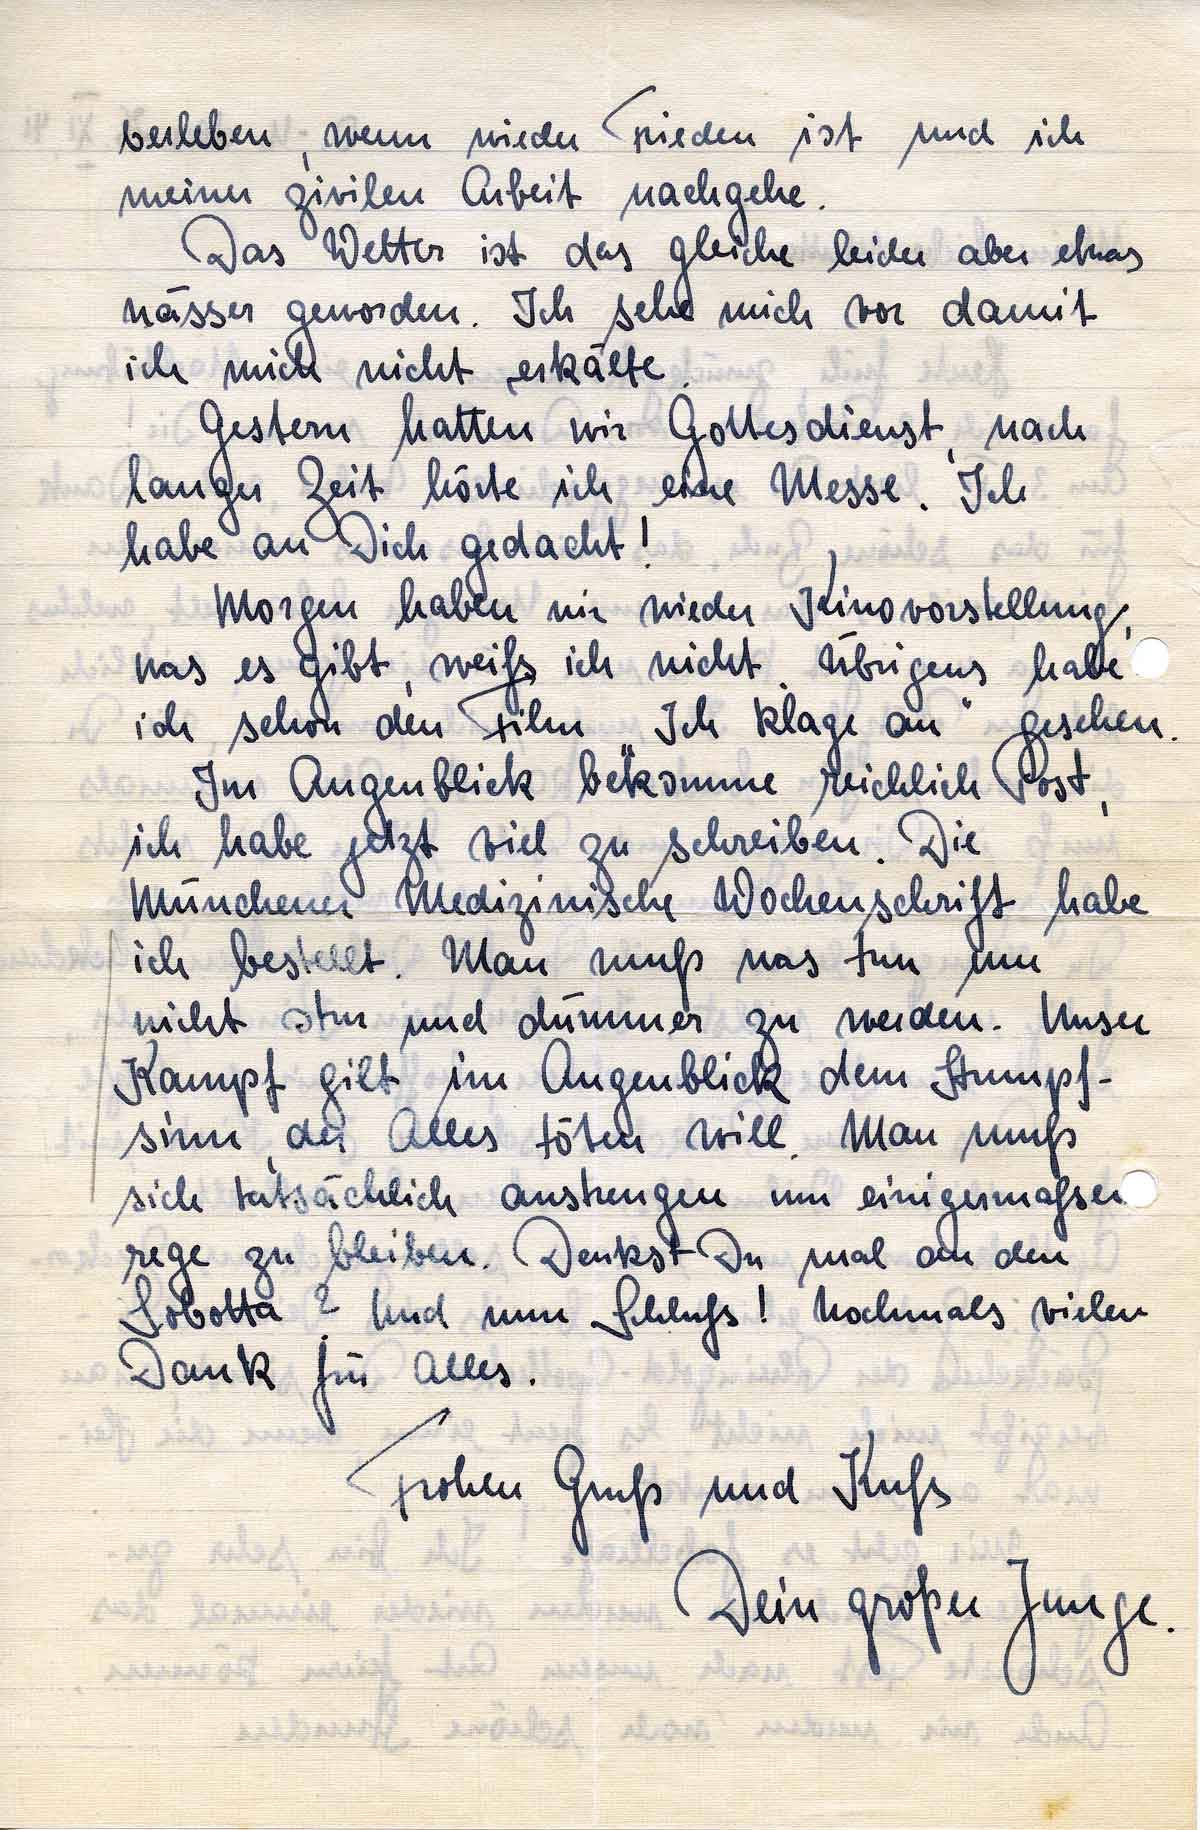 verleben, wenn wieder Frieden ist und ich
meiner zivilen Arbeit nachgehe.
Das Wetter ist das gleiche leider aber etwas
nässer geworden. Ich sehe mich vor damit
ich mich nicht erkälte.
Gestern hatten wir Gottesdienst, nach
langer Zeit hörte ich eine Messe. Ich
habe an Dich gedacht!
Morgen haben wir wieder Kinovorstellung,
was es gibt, weiß ich nicht. Übrigens habe
ich schon den Film „Ich klage an“ gesehen.
Im Augenblick bekomme reichlich Post,
ich habe jetzt viel zu schreiben. Die
Münchener Medizinische Wochenschrift habe
ich bestellt. Man muß was tun um
nicht stur und dümmer zu werden. Unser
Kampf gilt im Augenblick dem Stumpf-
sinn, der Alles töten will. Man muß
sich tatsächlich anstrengen um einigermaßen
rege zu bleiben. Denkst Du mal an den
Sobotta? Und nun Schluß! Nochmals vielen
Dank für Alles.
Frohen Gruß und Kuß
Dein großer Junge.